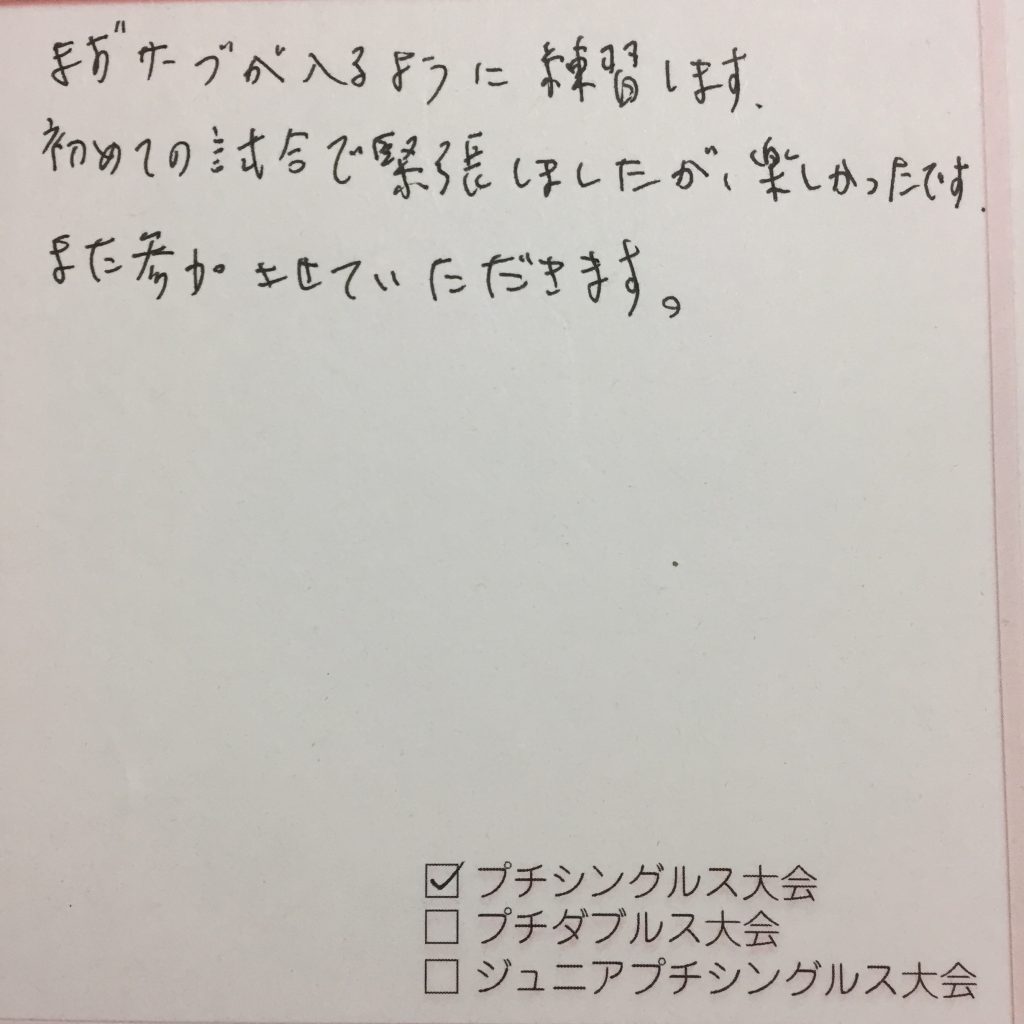 まずサーブが入るように練習します.
初めての試合で緊張しましたが、楽しかったです.
また参加させていただきます。
☑ プチシングルス大会
□ プチダブルス大会
□ ジュニアプチシングルス大会